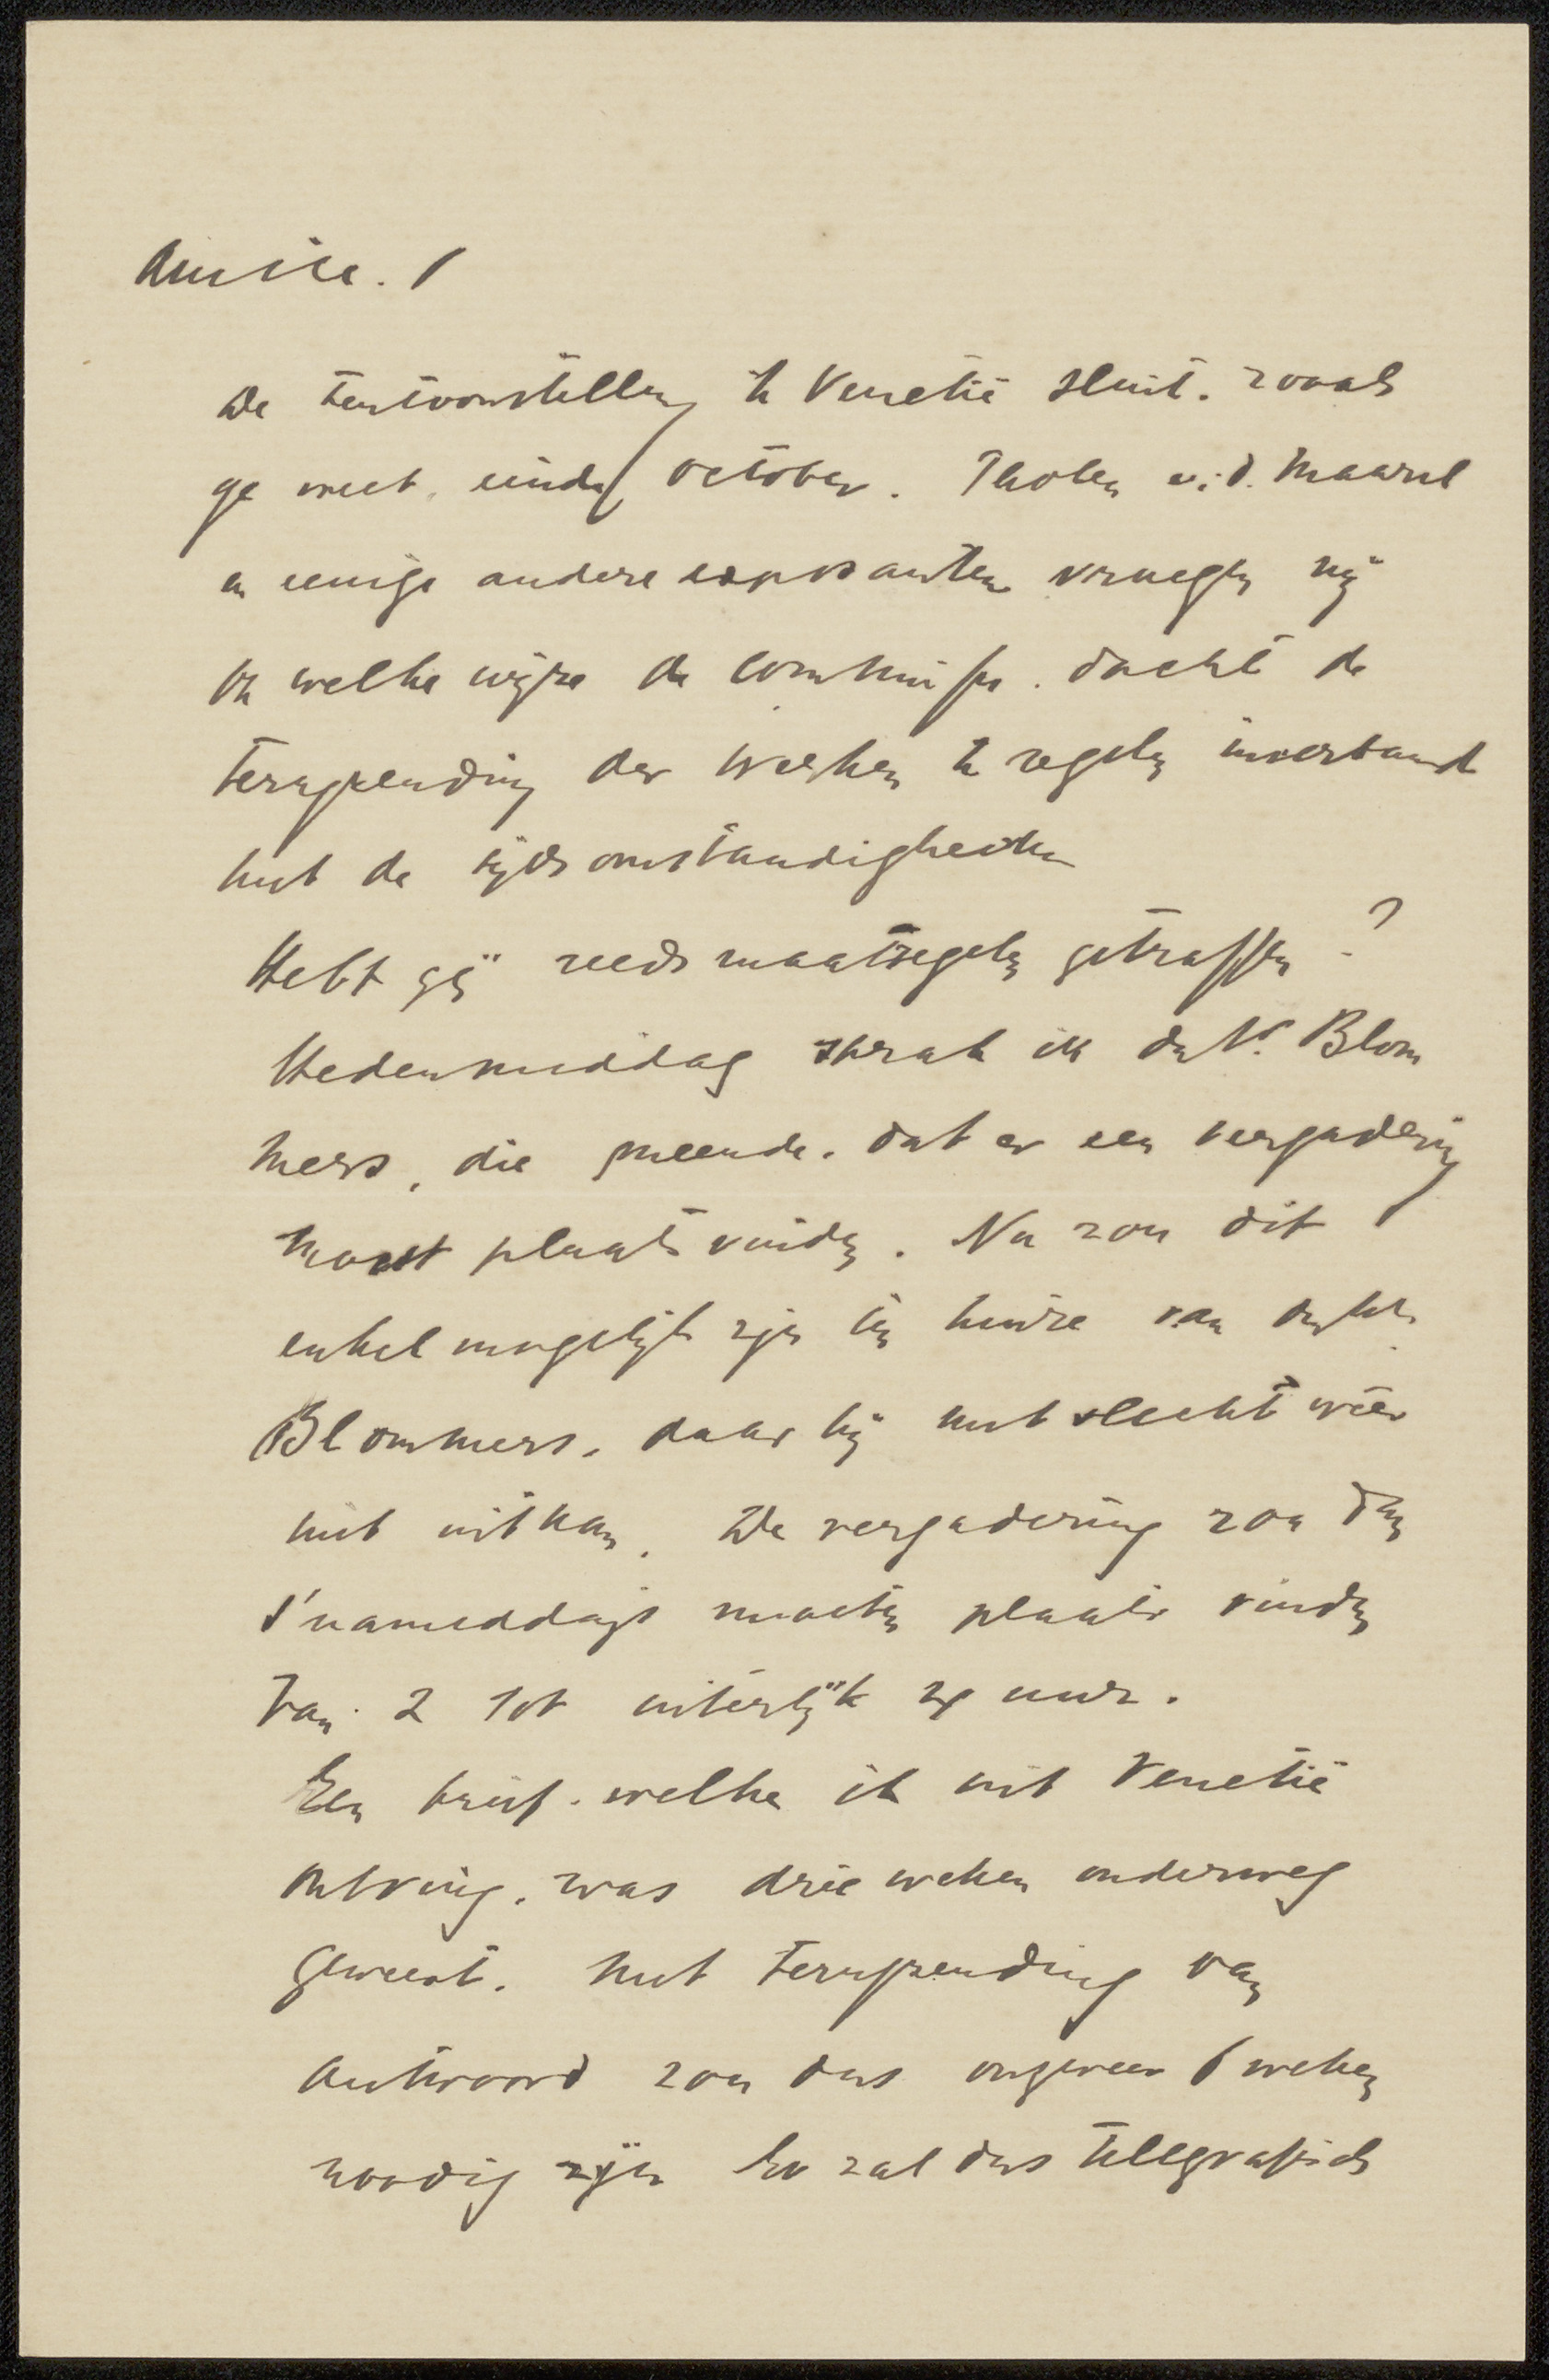 Amice. !
De tentoonstelling te Venetië sluit. zooals
ge weet, einde october. Tholen v. d. Maarel
en eenige andere exposanten vroegen mij
op welke wijze de commissie. dacht de
terugzending der werken te regelen inverband
met de tijdsomstandigheden
Hebt gij reeds maatregelen getroffen?
Hedenmiddag sprak ik den Hr. Blom
mers, die meende. dat er een vergadering
moest plaatsvinden. Nu zou dit
enkel mogelijk zijn ten huize van den hr.
Blommers, daar hij met slecht weer
niet uitkan. De vergadering zou dan
s'namiddags moeten plaats vinden
van 2 tot uiterlijk 4 uur.
Een brief. welke ik uit Venetië
ontving. was drie weken onderweg
geweest. Met terugzending van
antwoord zou dus ongeveer 6 weken
noodig zijn Er zal dus telegrafisch